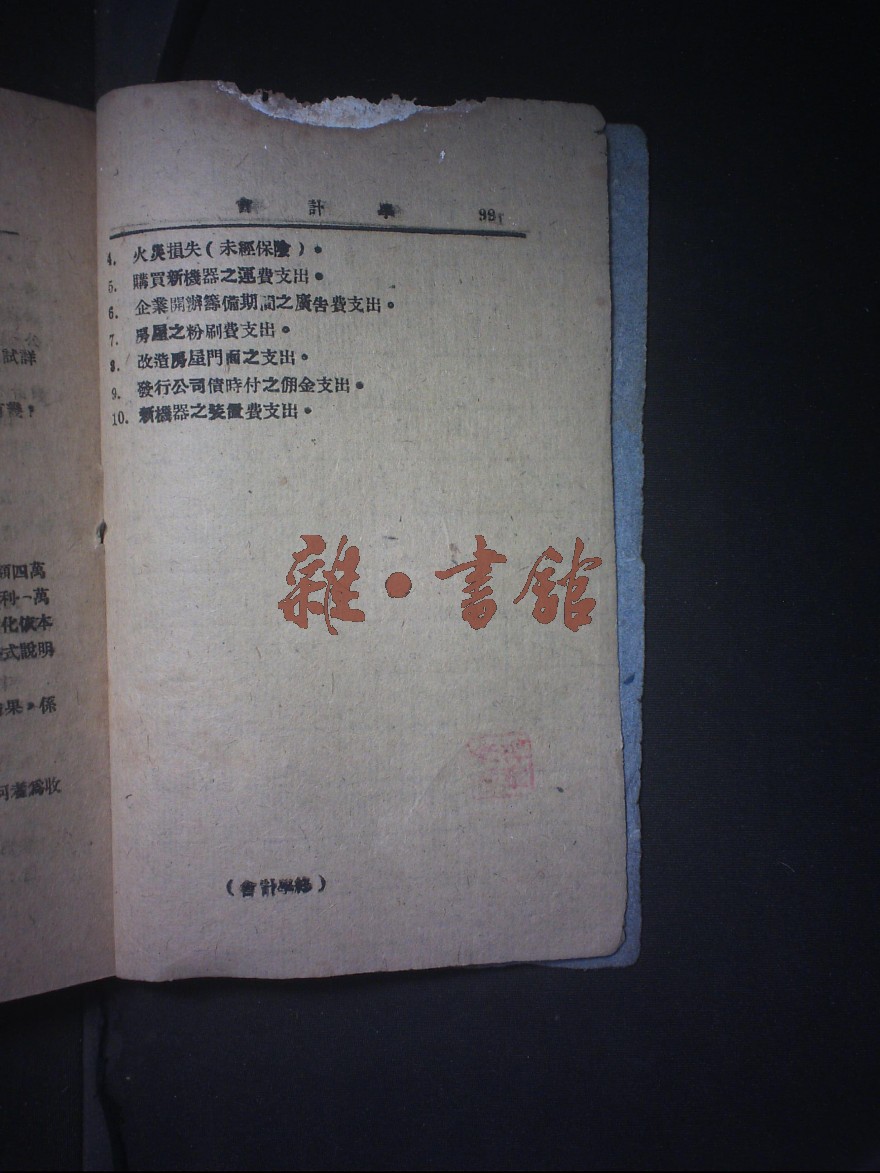 會計學 99
4. 火災損失（未經保險）。
5. 購買新機器之運費支出。
6. 企業開辦籌備期間之廣告費支出。
7. 房屋之粉刷費支出。
8. 改造房屋門面之支出。
9. 發行公司債時付之佣金支出。
10. 新機器之裝置費支出。
（會計學終）
試詳
四萬
利一萬
本
式說明
果。係
何者爲收
雜·書館